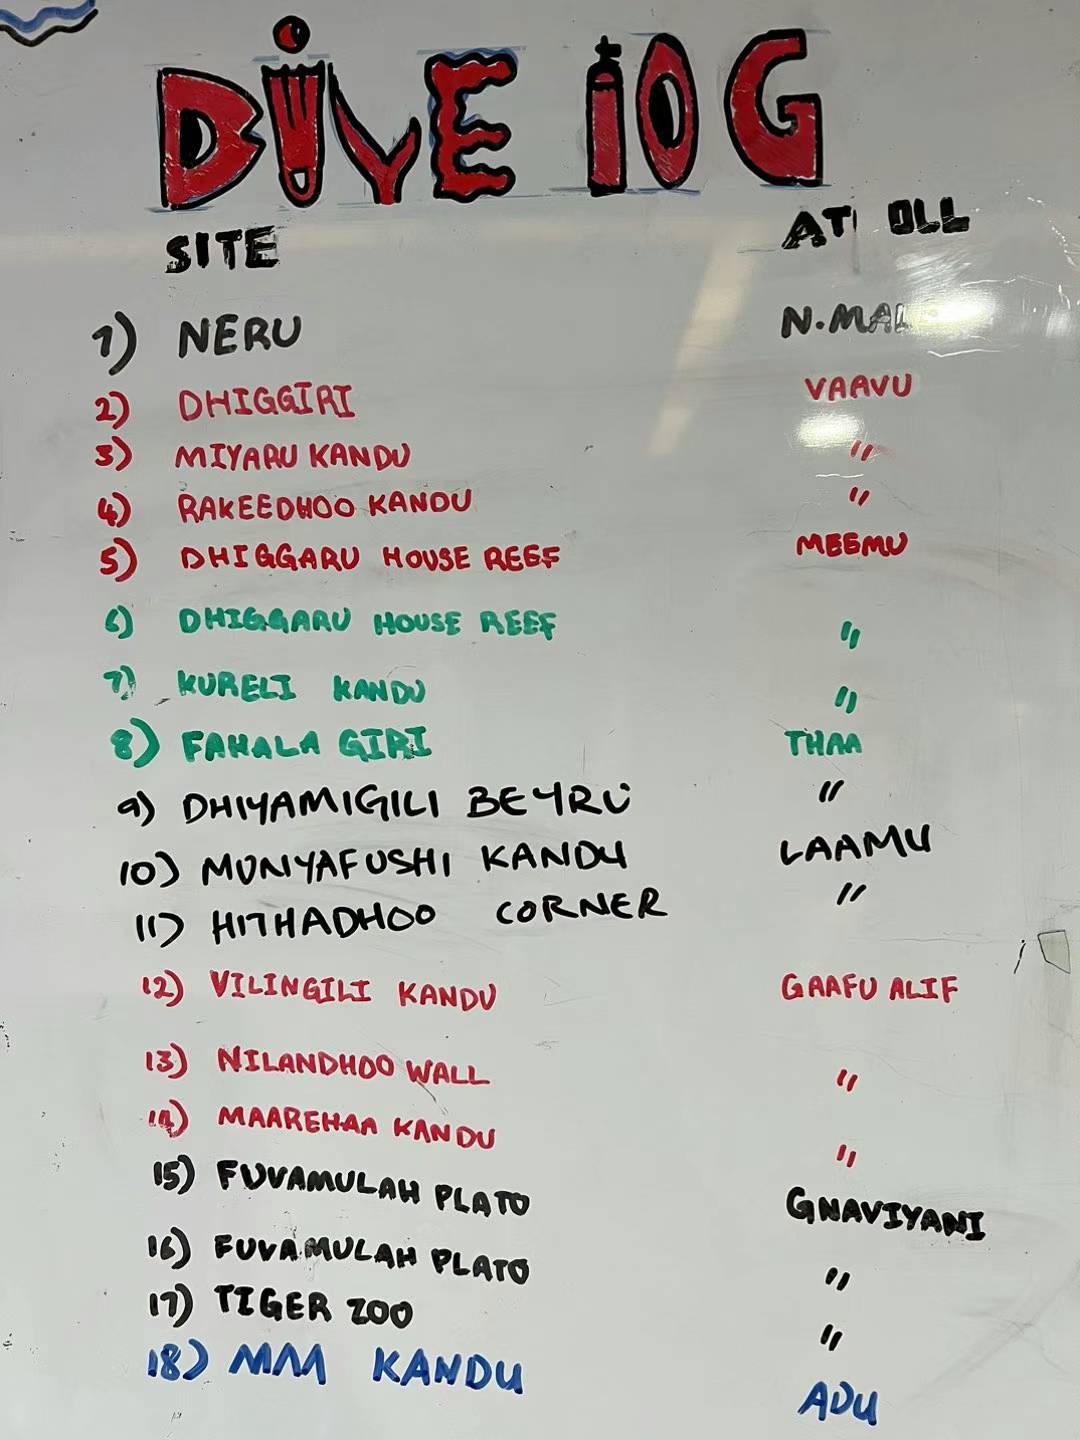 DIVE LOG
SITE ATOLL
1) NERU N.MAL
2) DHIGGIRI VAAVU
3) MIYARU KANDU "
4) RAKEEDHOO KANDU "
5) DHIGGARU HOUSE REEF MEEMU
6) DHIGGARU HOUSE REEF "
7) KURELI KANDU "
8) FAHALA GIRI THAA
9) DHIYAMIGILI BEYRU "
10) MUNYAFUSHI KANDU LAAMU
11) HITHADHOO CORNER "
12) VILINGILI KANDU GAAFU ALIF
13) NILANDHOO WALL "
14) MAAREHAA KANDU "
15) FUVAMULAH PLATO GNAVIYANI
16) FUVAMULAH PLATO "
17) TIGER ZOO "
18) MAA KANDU ADU